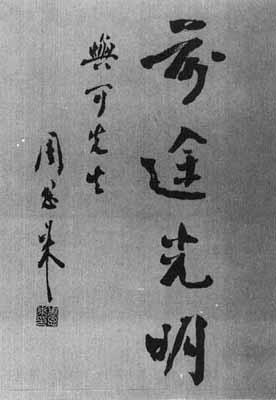 前途光明
與可先生
周恩来